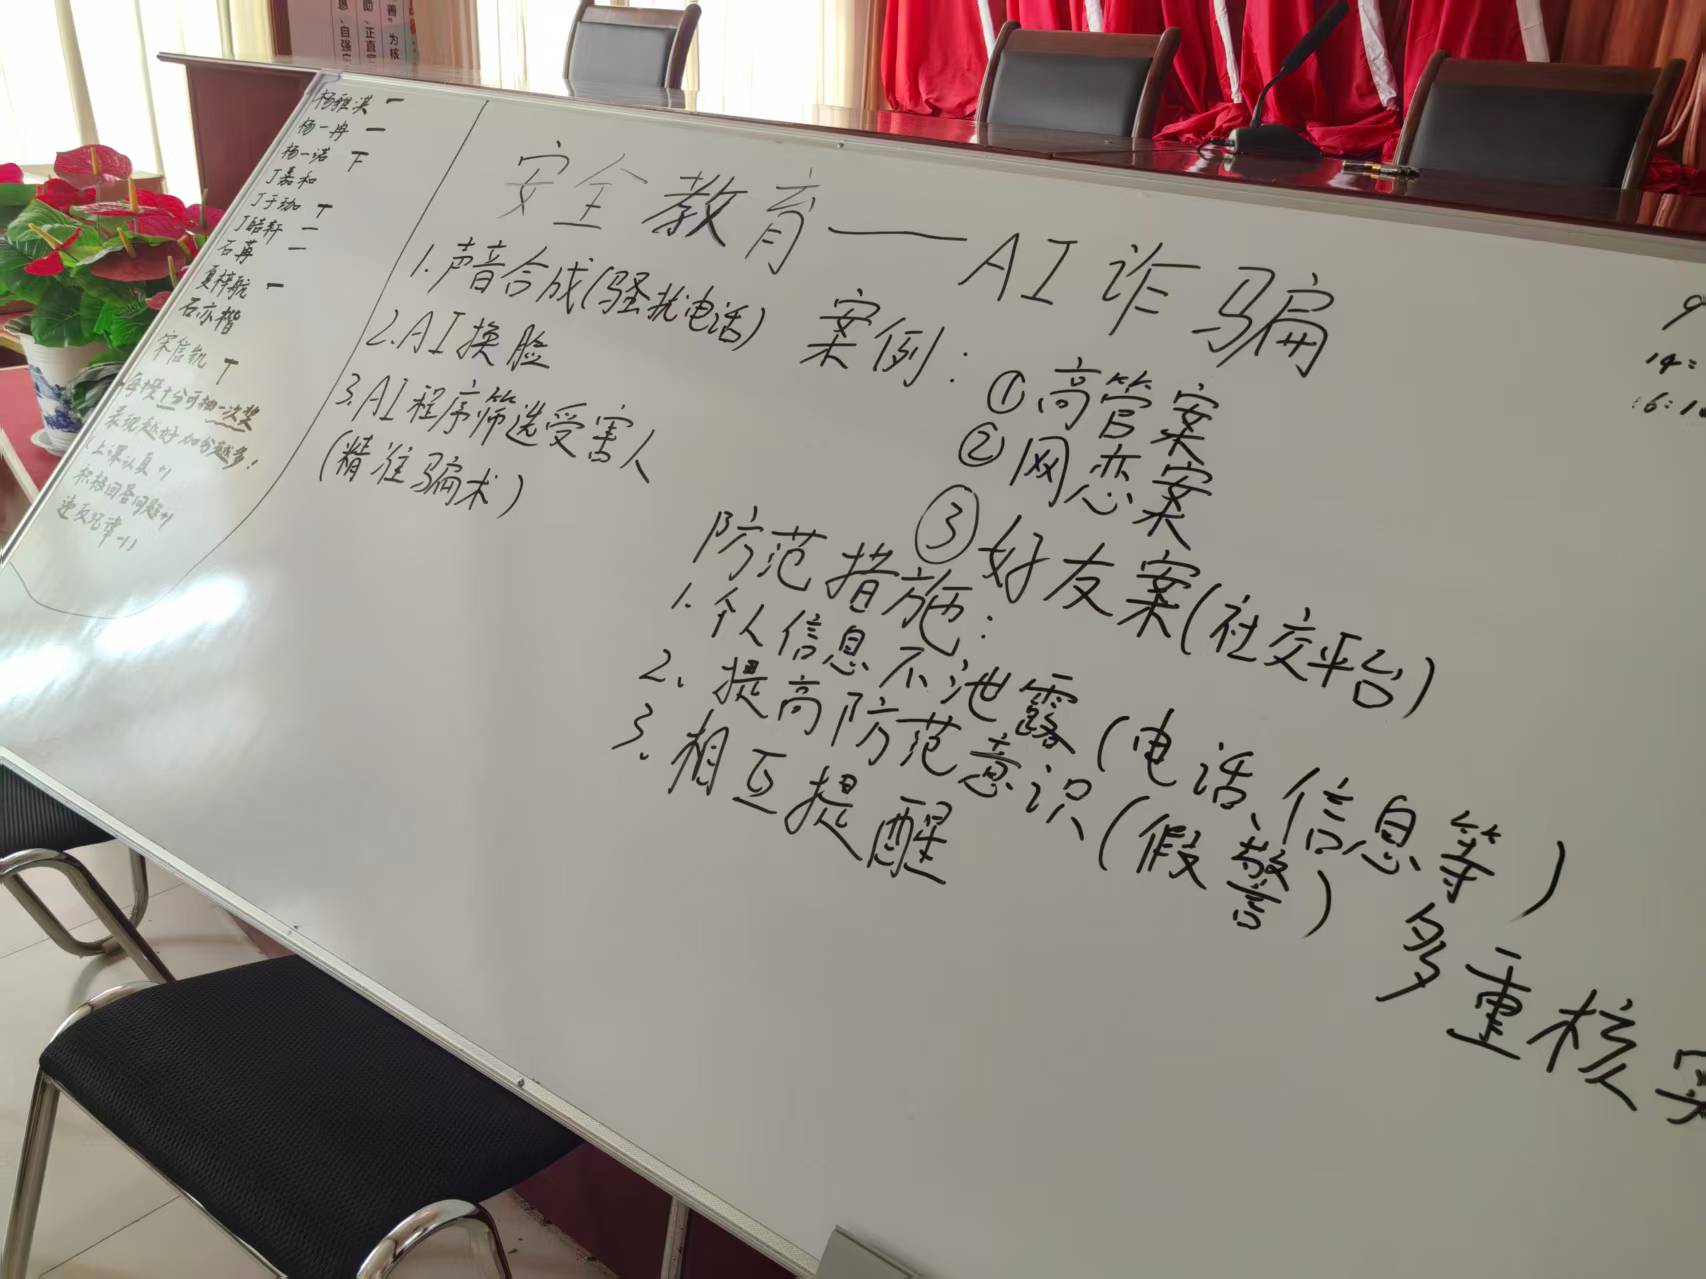 杨雅淇 一
杨一冉 一
杨一诺 T
丁嘉和
丁子珈 T
丁皓轩 一
石苒 一
夏梓航 一
石亦楷
宋信凯 T
每攒十分可抽一次奖
表现越好加分越多!
上课认真+1
积极回答问题+1
违反纪律-1
安全教育——AI诈骗
1.声音合成(骚扰电话)
2.AI换脸
3.AI程序筛选受害人
(精准骗术)
案例:①高管案
②网恋案
③好友案(社交平台)
防范措施:
1.个人信息不泄露(电话、信息等)
2、提高防范意识(假警)多重核实
3.相互提醒
9
14:
16:1